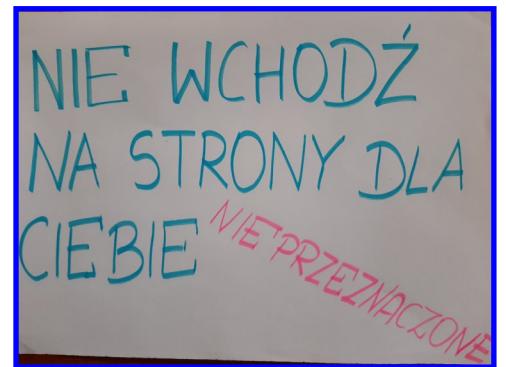 NIE WCHODŹ
NA STRONY DLA
CIEBIE
NIE PRZEZNACZONE